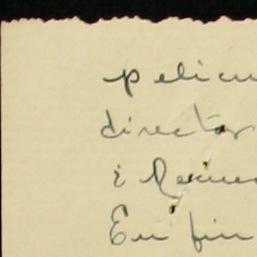 pelicu
director
i Recue
En fin